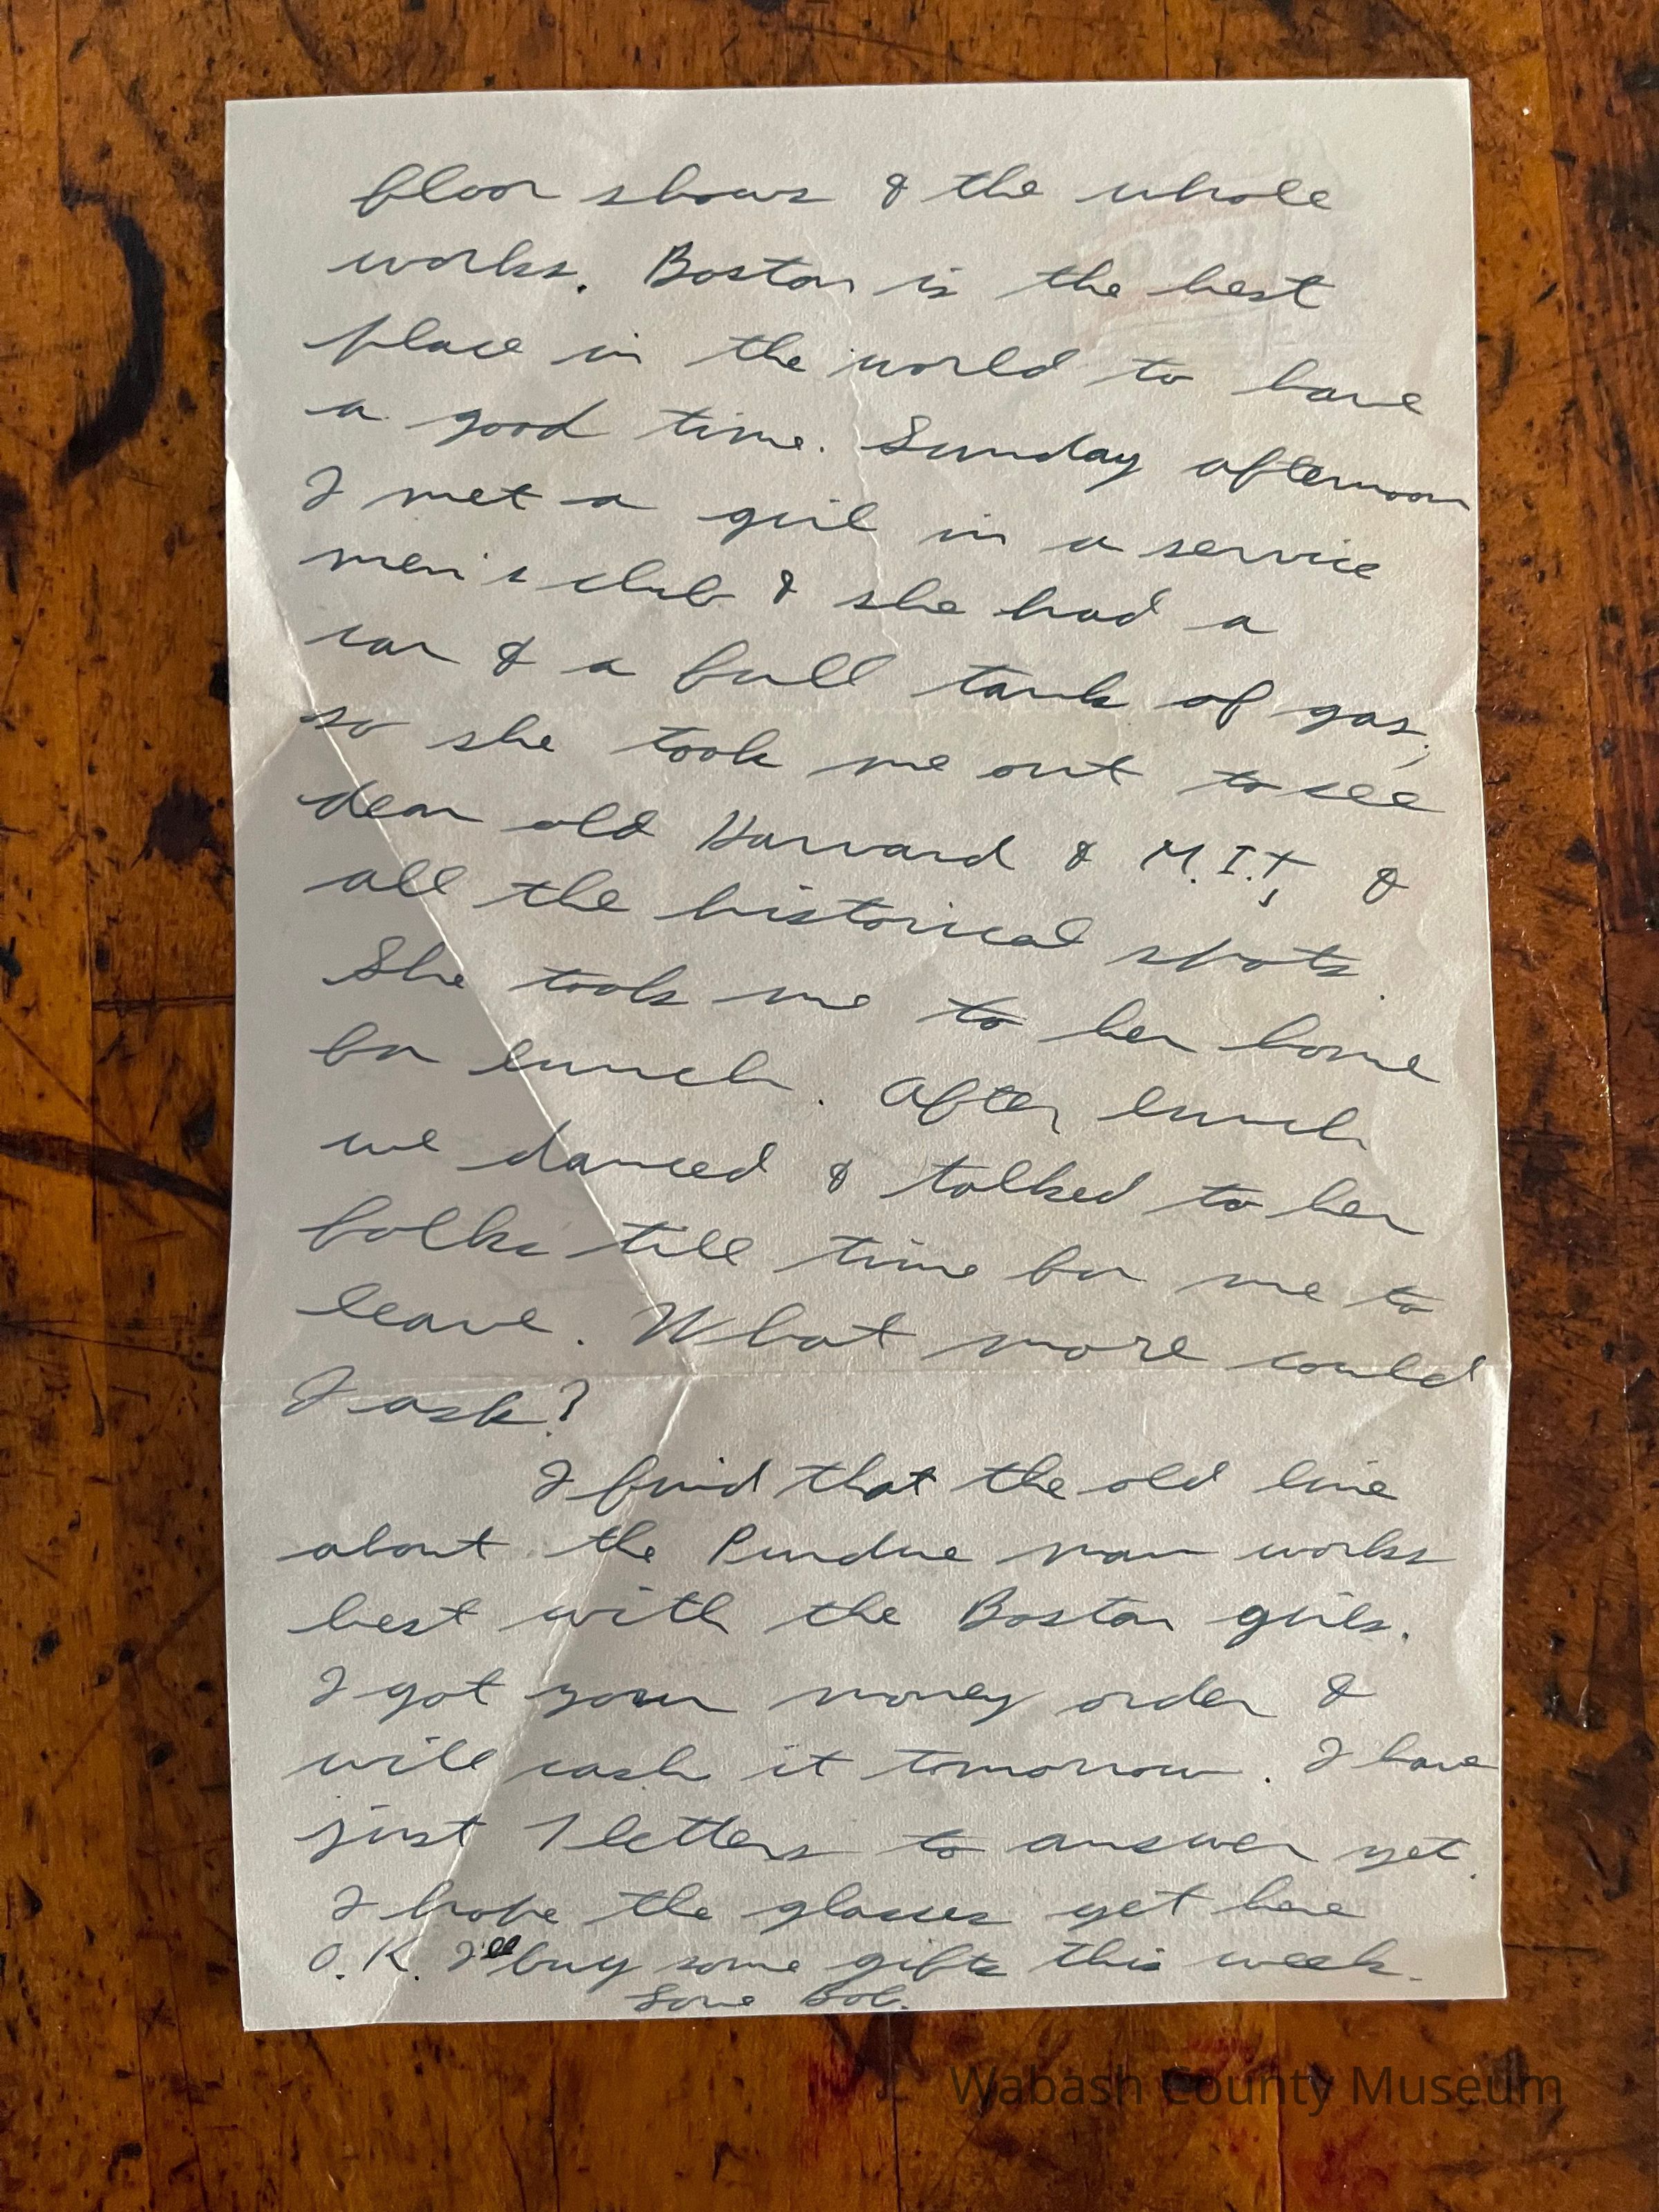 floor shows & the whole
works. Boston is the best
place in the world to have
a good time. Sunday afternoon
I met a girl in a service
men's club & she had a
car & a full tank of gas,
so she took me out to see
dear old Harvard & M.I.T, &
all the historical spots.
She took me to her home
for lunch. After lunch
we danced & talked to her
folks till time for me to
leave. What more could
I ask?
I find that the old line
about the Purdue man works
best with the Boston girls.
I got your money order &
will cash it tomorrow. I have
just 7 letters to answer yet.
I hope the glasses get here
O.K. I'll buy some gifts this week.
Love Bob.
Wabash County Museum